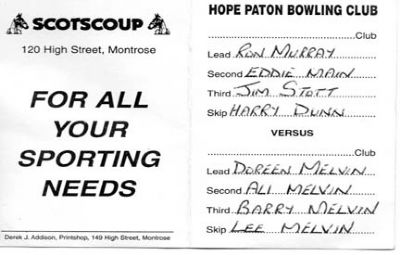 SCOTSCOUP
120 High Street, Montrose
FOR ALL
YOUR
SPORTING
NEEDS
Derek J. Addison, Printshop, 149 High Street, Montrose
HOPE PATON BOWLING CLUB
Club
Lead RON MURRAY
Second EDDIE MAIN
Third JIM STOTT
Skip HARRY DUNN
VERSUS
Club
Lead DOREEN MELVIN
Second ALI MELVIN
Third BARRY MELVIN
Skip LEE MELVIN